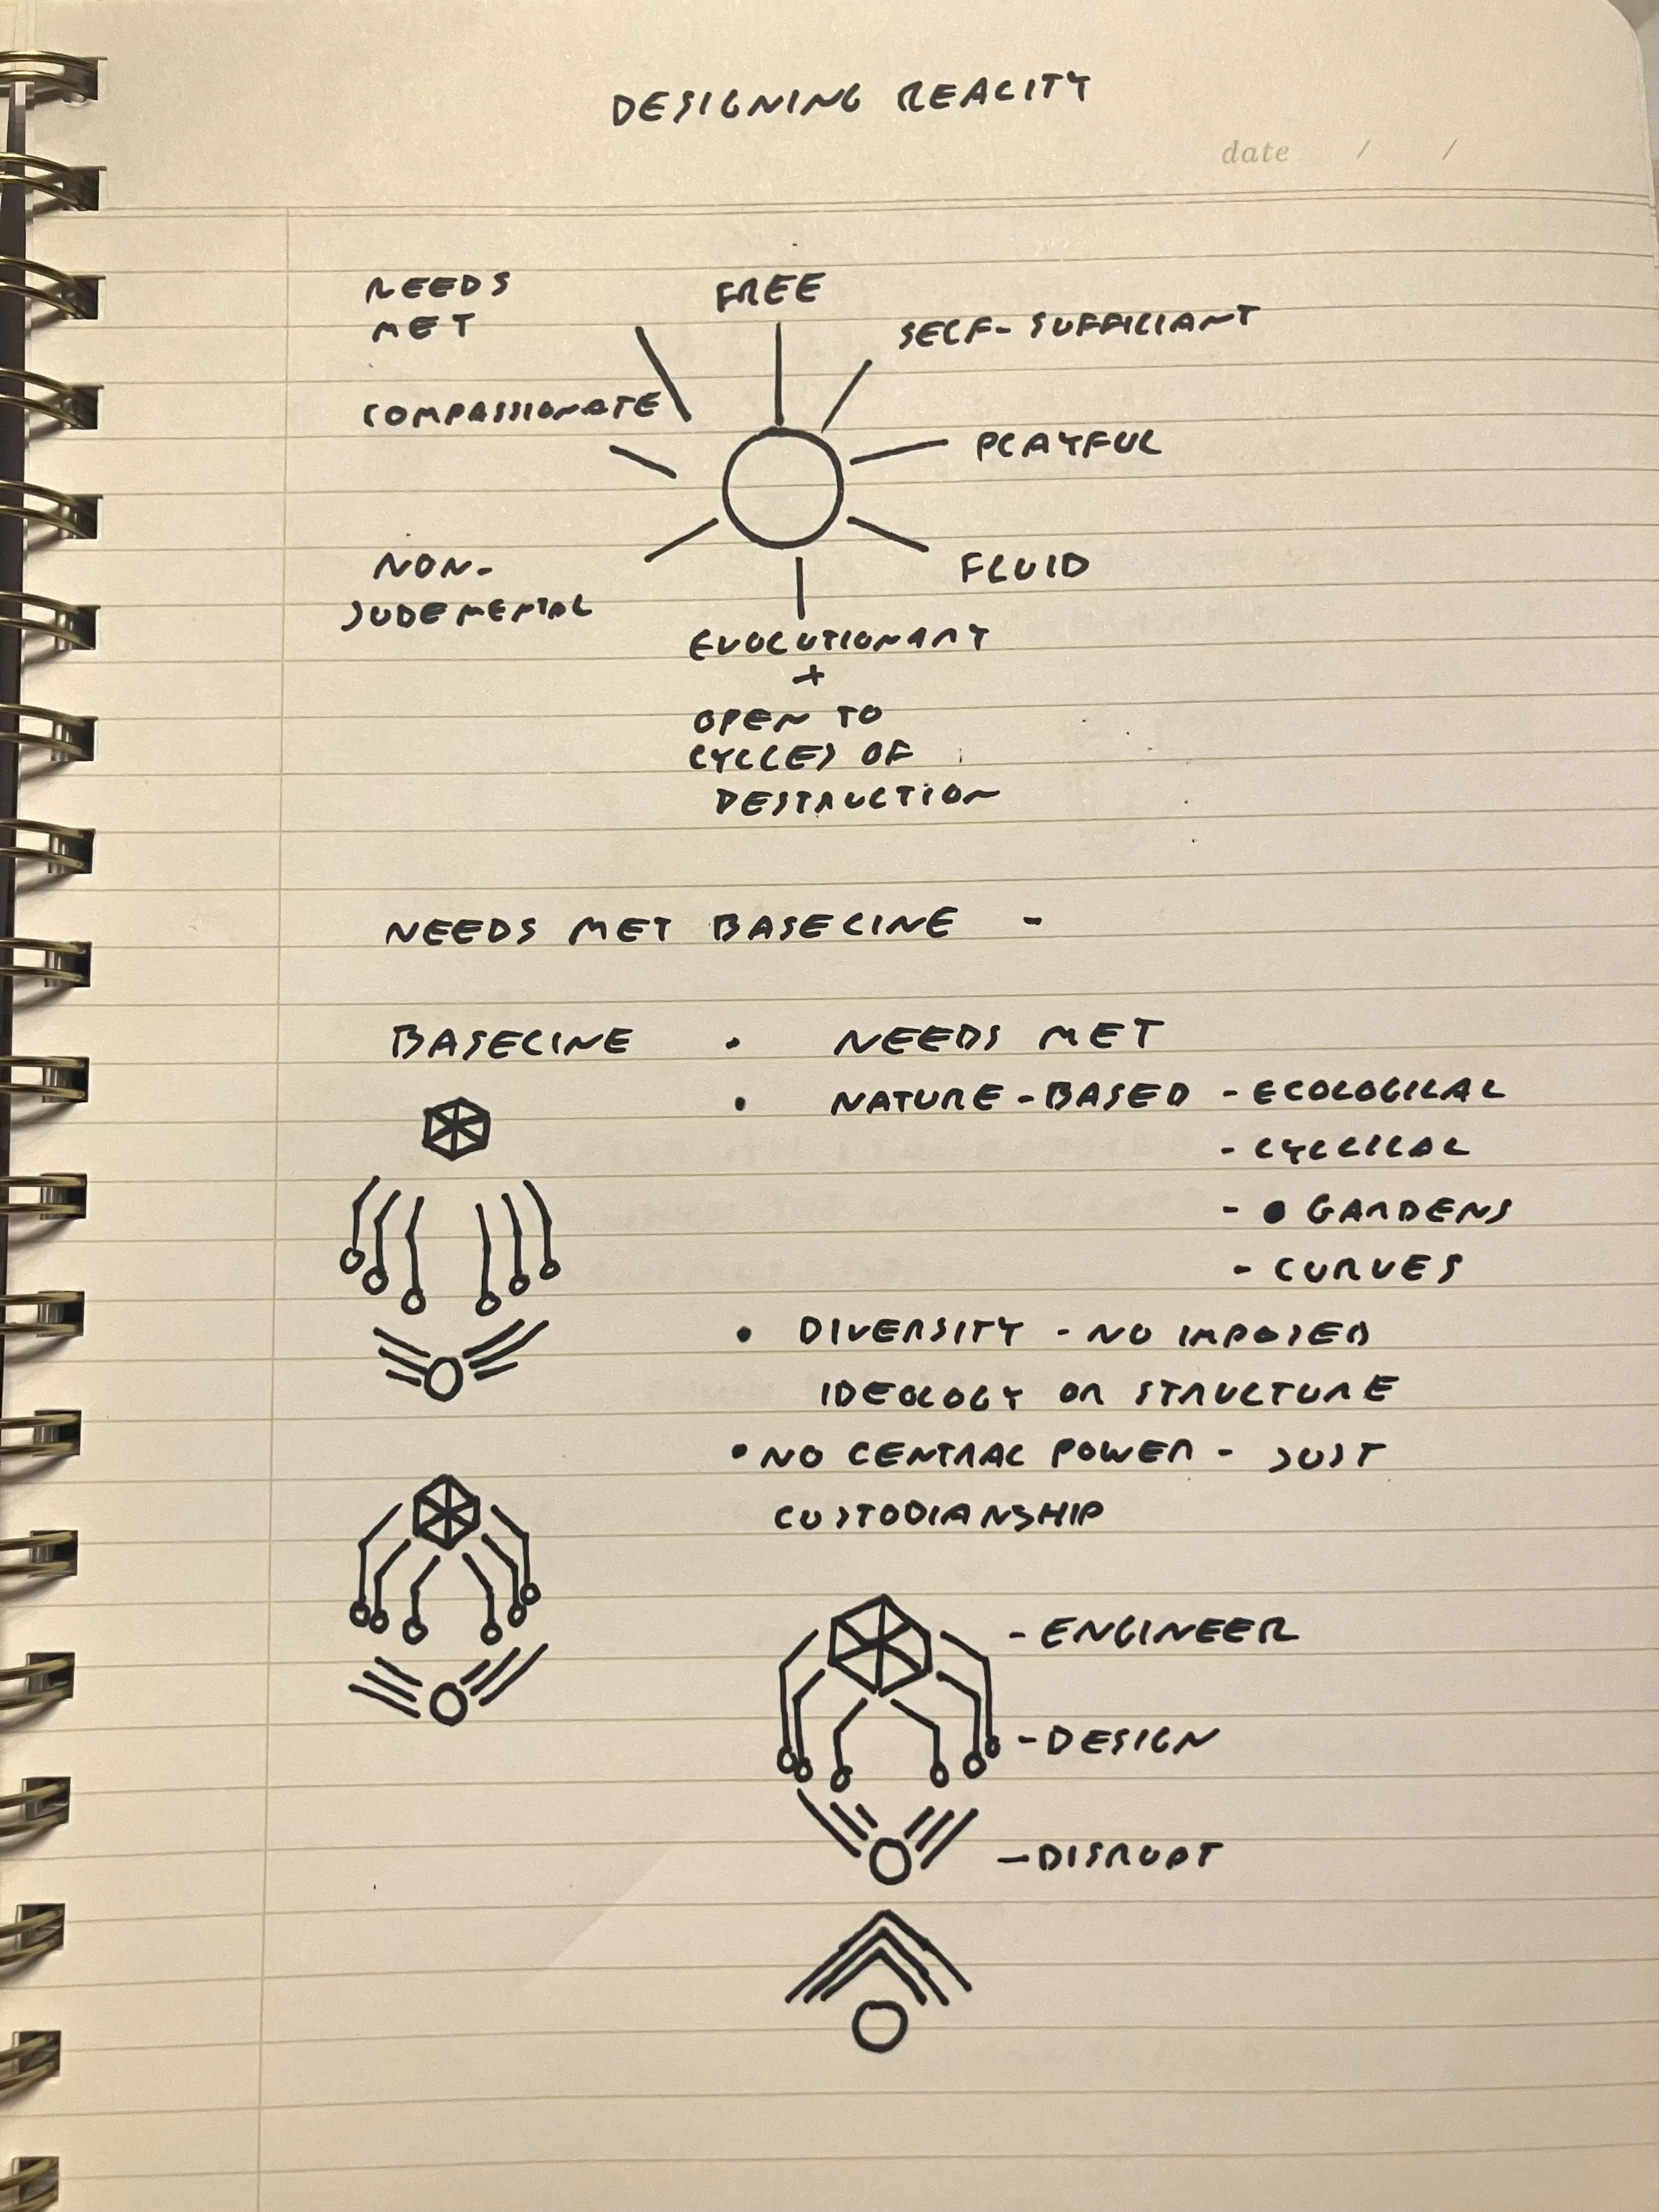 DESIGNING REALITY
date / /
NEEDS
MET
FREE
SELF-SUFFICIANT
COMPASSIONATE
PLAYFUL
NON-
JUDEMENTAL
FLUID
EVOLUTIONARY
+
OPEN TO
CYCLES OF
DESTRUCTION
NEEDS MET BASELINE -
BASELINE • NEEDS MET
• NATURE-BASED - ECOLOGICAL
- CYCLICAL
- GARDENS
- CURVES
• DIVERSITY - NO IMPOSED
IDEOLOGY OR STRUCTURE
• NO CENTRAL POWER - JUST
CUSTODIANSHIP
- ENGINEER
- DESIGN
- DISRUPT